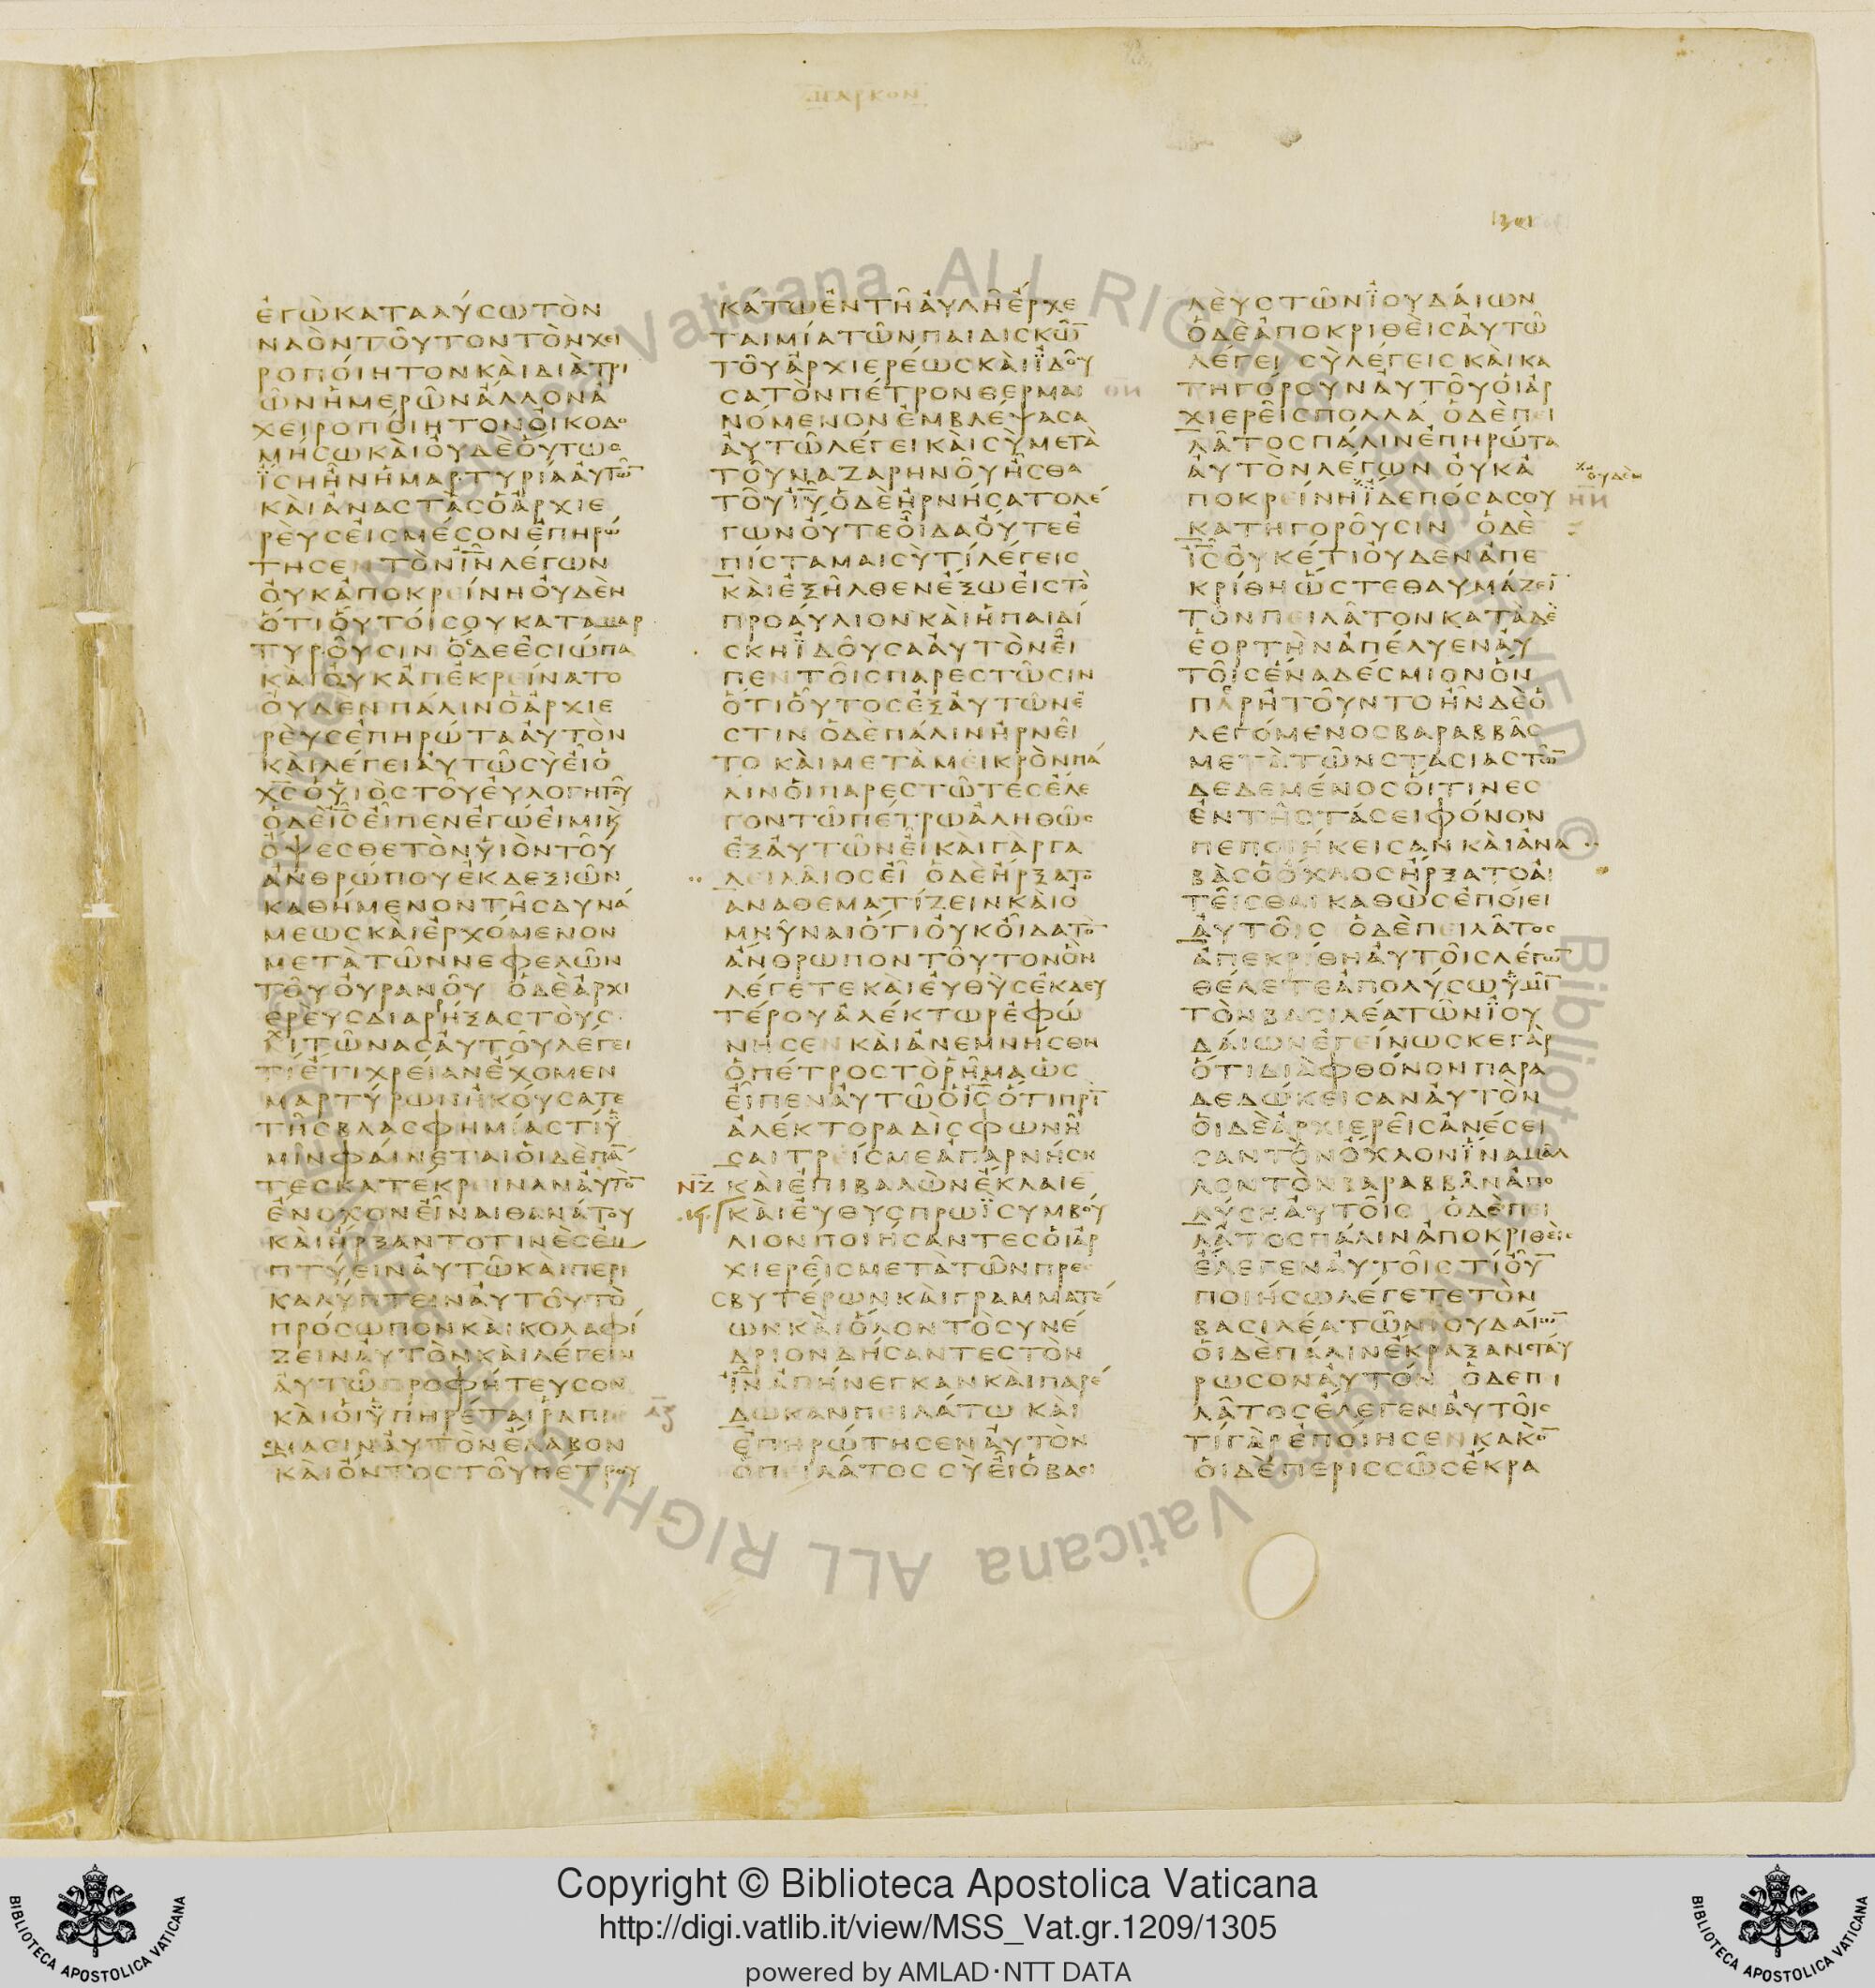 ΜΑΡΚΟΝ
ΕΓΩΚΑΤΑΛΥϹΩΤΟΝ
ΝΑΟΝΤΟΥΤΟΝΤΟΝΧΕΙ
ΡΟΠΟΙΗΤΟΝΚΑΙΔΙΑΤΡΙ
ΩΝΗΜΕΡΩΝΑΛΛΟΝΑ
ΧΕΙΡΟΠΟΙΗΤΟΝΟΙΚΟΔΟ
ΜΗϹΩΚΑΙΟΥΔΕΟΥΤΩϹ
ΪϹΗΗΝΗΜΑΡΤΥΡΙΑΑΥΤΩ̅
ΚΑΙΑΝΑϹΤΑϹΟΑΡΧΙΕ
ΡΕΥϹΕΙϹΜΕϹΟΝΕΠΗΡΩ
ΤΗϹΕΝΤΟΝΙ̅Ν̅ΛΕΓΩΝ
ΟΥΚΑΠΟΚΡΕΙΝΗΟΥΔΕΝ
ΟΤΙΟΥΤΟΙϹΟΥΚΑΤΑΜΑΡ
ΤΥΡΟΥϹΙΝ ΟΔΕΕϹΙΩΠΑ
ΚΑΙΟΥΚΑΠΕΚΡΕΙΝΑΤΟ
ΟΥΔΕΝ ΠΑΛΙΝΟΑΡΧΙΕ
ΡΕΥϹΕΠΗΡΩΤΑΑΥΤΟΝ
ΚΑΙΛΕΓΕΙΑΥΤΩϹΥΕΙΟ
Χ̅Ϲ̅ΟΥΙΟϹΤΟΥΕΥΛΟΓΗΤΟΥ
ΟΔΕΙ̅Ϲ̅ΕΙΠΕΝΕΓΩΕΙΜΙΚ
ΟΨΕϹΘΕΤΟΝΥΙΟΝΤΟΥ
ΑΝΘΡΩΠΟΥΕΚΔΕΞΙΩΝ
ΚΑΘΗΜΕΝΟΝΤΗϹΔΥΝΑ
ΜΕΩϹΚΑΙΕΡΧΟΜΕΝΟΝ
ΜΕΤΑΤΩΝΝΕΦΕΛΩΝ
ΤΟΥΟΥΡΑΝΟΥ ΟΔΕΑΡΧΙ
ΕΡΕΥϹΔΙΑΡΗΞΑϹΤΟΥϹ
ΧΙΤΩΝΑϹΑΥΤΟΥΛΕΓΕΙ
ΤΙΕΤΙΧΡΕΙΑΝΕΧΟΜΕΝ
ΜΑΡΤΥΡΩΝΗΚΟΥϹΑΤΕ
ΤΗϹΒΛΑϹΦΗΜΙΑϹΤΙΫ
ΜΙΝΦΑΙΝΕΤΑΙΟΙΔΕΠΑ̅
ΤΕϹΚΑΤΕΚΡΕΙΝΑΝΑΥΤΟ̅
ΕΝΟΧΟΝΕΙΝΑΙΘΑΝΑΤΟΥ
ΚΑΙΗΡΞΑΝΤΟΤΙΝΕϹΕΜ
ΠΤΥΕΙΝΑΥΤΩΚΑΙΠΕΡΙ
ΚΑΛΥΠΤΕΙΝΑΥΤΟΥΤΟ
ΠΡΟϹΩΠΟΝΚΑΙΚΟΛΑΦΙ
ΖΕΙΝΑΥΤΟΝΚΑΙΛΕΓΕΙΝ
ΑΥΤΩΠΡΟΦΗΤΕΥϹΟΝ
ΚΑΙΟΙΫΠΗΡΕΤΑΙΡΑΠΙ
ϹΜΑϹΙΝΑΥΤΟΝΕΛΑΒΟΝ
ΚΑΙΟΝΤΟϹΤΟΥΠΕΤΡΟΥ
ΚΑΤΩΕΝΤΗΑΥΛΗΕΡΧΕ
ΤΑΙΜΙΑΤΩΝΠΑΙΔΙϹΚΩ̅
ΤΟΥΑΡΧΙΕΡΕΩϹΚΑΙΪΔΟΥ
ϹΑΤΟΝΠΕΤΡΟΝΘΕΡΜΑΙ
ΝΟΜΕΝΟΝΕΜΒΛΕΨΑϹΑ
ΑΥΤΩΛΕΓΕΙΚΑΙϹΥΜΕΤΑ
ΤΟΥΝΑΖΑΡΗΝΟΥΗϹΘΑ
ΤΟΥΙ̅Υ̅ΟΔΕΗΡΝΗϹΑΤΟΛΕ
ΓΩΝΟΥΤΕΟΙΔΑΟΥΤΕΕ
ΠΙϹΤΑΜΑΙϹΥΤΙΛΕΓΕΙϹ
ΚΑΙΕΞΗΛΘΕΝΕΞΩΕΙϹΤΟ
ΠΡΟΑΥΛΙΟΝΚΑΙΗΠΑΙΔΙ
ϹΚΗΪΔΟΥϹΑΑΥΤΟΝΕΙ
ΠΕΝΤΟΙϹΠΑΡΕϹΤΩϹΙΝ
ΟΤΙΟΥΤΟϹΕΞΑΥΤΩΝΕ
ϹΤΙΝ ΟΔΕΠΑΛΙΝΗΡΝΕΙ
ΤΟ ΚΑΙΜΕΤΑΜΕΙΚΡΟΝΠΑ
ΛΙΝΟΙΠΑΡΕϹΤΩΤΕϹΕΛΕ
ΓΟΝΤΩΠΕΤΡΩΑΛΗΘΩϹ
ΕΞΑΥΤΩΝΕΙΚΑΙΓΑΡΓΑ
ΛΕΙΛΑΙΟϹΕΙ ΟΔΕΗΡΞΑΤΟ
ΑΝΑΘΕΜΑΤΙΖΕΙΝΚΑΙΟ
ΜΝΥΝΑΙΟΤΙΟΥΚΟΙΔΑΤΟ̅
ΑΝΘΡΩΠΟΝΤΟΥΤΟΝΟΝ
ΛΕΓΕΤΕΚΑΙΕΥΘΥϹΕΚΔΕΥ
ΤΕΡΟΥΑΛΕΚΤΩΡΕΦΩ
ΝΗϹΕΝΚΑΙΑΝΕΜΝΗϹΘΗ
ΟΠΕΤΡΟϹΤΟΡΗΜΑΩϹ
ΕΙΠΕΝΑΥΤΩΟΙ̅Ϲ̅ΟΤΙΠΡΙ̅
ΑΛΕΚΤΟΡΑΔΙϹΦΩΝΗ
ϹΑΙΤΡΕΙϹΜΕΑΠΑΡΝΗϹΗ
ΝΖ ΚΑΙΕΠΙΒΑΛΩΝΕΚΛΑΙΕ
ΚΑΙΕΥΘΥϹΠΡΩΪϹΥΜΒΟΥ
ΛΙΟΝΠΟΙΗϹΑΝΤΕϹΟΙΑΡ
ΧΙΕΡΕΙϹΜΕΤΑΤΩΝΠΡΕ
ϹΒΥΤΕΡΩΝΚΑΙΓΡΑΜΜΑΤΕ
ΩΝΚΑΙΟΛΟΝΤΟϹΥΝΕ
ΔΡΙΟΝΔΗϹΑΝΤΕϹΤΟΝ
Ι̅Ν̅ΑΠΗΝΕΓΚΑΝΚΑΙΠΑΡΕ
ΔΩΚΑΝΠΕΙΛΑΤΩ ΚΑΙ
ΕΠΗΡΩΤΗϹΕΝΑΥΤΟΝ
ΟΠΕΙΛΑΤΟϹϹΥΕΙΟΒΑϹΙ
ΛΕΥϹΤΩΝΪΟΥΔΑΙΩΝ
ΟΔΕΑΠΟΚΡΙΘΕΙϹΑΥΤΩ
ΛΕΓΕΙ ϹΥΛΕΓΕΙϹΚΑΙΚΑ
ΤΗΓΟΡΟΥΝΑΥΤΟΥΟΙΑΡ
ΧΙΕΡΕΙϹΠΟΛΛΑ ΟΔΕΠΕΙ
ΛΑΤΟϹΠΑΛΙΝΕΠΗΡΩΤΑ
ΑΥΤΟΝΛΕΓΩΝ ΟΥΚΑ
ΟΥΔΕΝ
ΠΟΚΡΕΙΝΗΪΔΕΠΟϹΑϹΟΥ
ΚΑΤΗΓΟΡΟΥϹΙΝ ΟΔΕ
Ι̅Ϲ̅ΟΥΚΕΤΙΟΥΔΕΝΑΠΕ
ΚΡΙΘΗΩϹΤΕΘΑΥΜΑΖΕΙ̅
ΤΟΝΠΕΙΛΑΤΟΝΚΑΤΑΔΕ
ΕΟΡΤΗΝΑΠΕΛΥΕΝΑΥ
ΤΟΙϹΕΝΑΔΕϹΜΙΟΝΟΝ
ΠΑΡΗΤΟΥΝΤΟΗΝΔΕΟ
ΛΕΓΟΜΕΝΟϹΒΑΡΑΒΒΑϹ
ΜΕΤΑΤΩΝϹΤΑϹΙΑϹΤΩ̅
ΔΕΔΕΜΕΝΟϹΟΙΤΙΝΕϹ
ΕΝΤΗϹΤΑϹΕΙΦΟΝΟΝ
ΠΕΠΟΙΗΚΕΙϹΑΝΚΑΙΑΝΑ
ΒΑϹΟΟΧΛΟϹΗΡΞΑΤΟΑΙ
ΤΕΙϹΘΑΙΚΑΘΩϹΕΠΟΙΕΙ
ΑΥΤΟΙϹ ΟΔΕΠΕΙΛΑΤΟϹ
ΑΠΕΚΡΙΘΗΑΥΤΟΙϹΛΕΓΩ̅
ΘΕΛΕΤΕΑΠΟΛΥϹΩΫΜΙ̅
ΤΟΝΒΑϹΙΛΕΑΤΩΝΪΟΥ
ΔΑΙΩΝΕΓΕΙΝΩϹΚΕΓΑΡ
ΟΤΙΔΙΑΦΘΟΝΟΝΠΑΡΑ
ΔΕΔΩΚΕΙϹΑΝΑΥΤΟΝ
ΟΙΔΕΑΡΧΙΕΡΕΙϹΑΝΕϹΕΙ
ϹΑΝΤΟΝΟΧΛΟΝΪΝΑΜΑΛ
ΛΟΝΤΟΝΒΑΡΑΒΒΑΝΑΠΟ
ΛΥϹΗΑΥΤΟΙϹ ΟΔΕΠΕΙ
ΛΑΤΟϹΠΑΛΙΝΑΠΟΚΡΙΘΕΙϹ
ΕΛΕΓΕΝΑΥΤΟΙϹΤΙΟΥ̅
ΠΟΙΗϹΩΛΕΓΕΤΕΤΟΝ
ΒΑϹΙΛΕΑΤΩΝΙΟΥΔΑΙΩ̅
ΟΙΔΕΠΑΛΙΝΕΚΡΑΞΑΝϹΤΑΥ
ΡΩϹΟΝΑΥΤΟΝ ΟΔΕΠΙ
ΛΑΤΟϹΕΛΕΓΕΝΑΥΤΟΙϹ
ΤΙΓΑΡΕΠΟΙΗϹΕΝΚΑΚΟ̅
ΟΙΔΕΠΕΡΙϹϹΩϹΕΚΡΑ
Copyright © Biblioteca Apostolica Vaticana
http://digi.vatlib.it/view/MSS_Vat.gr.1209/1305
powered by AMLAD·NTT DATA
BIBLIOTECA APOSTOLICA VATICANA
BIBLIOTECA APOSTOLICA VATICANA